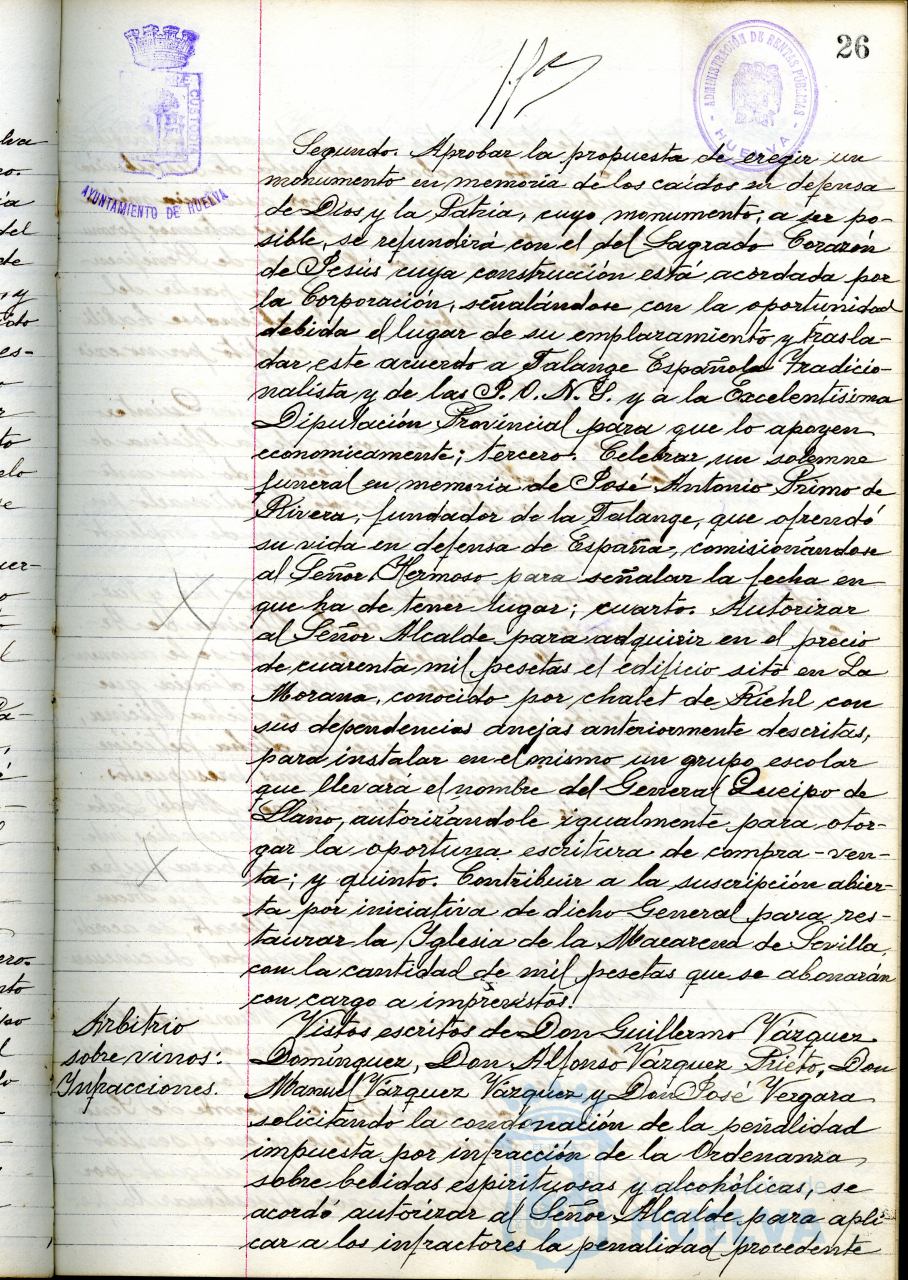 26
AYUNTAMIENTO DE HUELVA
ADMINISTRACIÓN DE RENTAS PÚBLICAS
- HUELVA -
Segundo. Aprobar la propuesta de eregir un
monumento en memoria de los caídos en defensa
de Dios y la Patria, cuyo monumento, a ser po-
sible, se refundirá con el del Sagrado Corazón
de Jesús cuya construcción está acordada por
la Corporación, señalándose con la oportunidad
debida el lugar de su emplazamiento y trasla-
dar este acuerdo a Falange Española Tradicio-
nalista y de las J.O.N.S. y a la Excelentísima
Diputación Provincial para que lo apoyen
economicamente; tercero. Celebrar un solemne
funeral en memoria de José Antonio Primo de
Rivera, fundador de la Falange, que ofrendó
su vida en defensa de España, comisionándose
al Señor Hermoso para señalar la fecha en
que ha de tener lugar; cuarto. Autorizar
al Señor Alcalde para adquirir en el precio
de cuarenta mil pesetas el edificio sito en La
Morana, conocido por chalet de Kiehl con
sus dependencias anejas anteriormente descritas,
para instalar en el mismo un grupo escolar
que llevará el nombre del General Queipo de
Llano, autorizándole igualmente para otor-
gar la oportuna escritura de compra-ven-
ta; y quinto. Contribuir a la suscripción abier-
ta por iniciativa de dicho General para res-
taurar la Iglesia de la Macarena de Sevilla,
con la cantidad de mil pesetas que se abonarán
con cargo a imprevistos.
Arbitrio
sobre vinos:
Infracciones.
Vistos escritos de Don Guillermo Vázquez
Domínguez, Don Alfonso Vázquez Prieto, Don
Manuel Vázquez Vázquez y Don José Vergara
solicitando la condonación de la penalidad
impuesta por infracción de la Ordenanza
sobre bebidas espirituosas y alcohólicas, se
acordó autorizar al Señor Alcalde para apli
car a los infractores la penalidad procedente